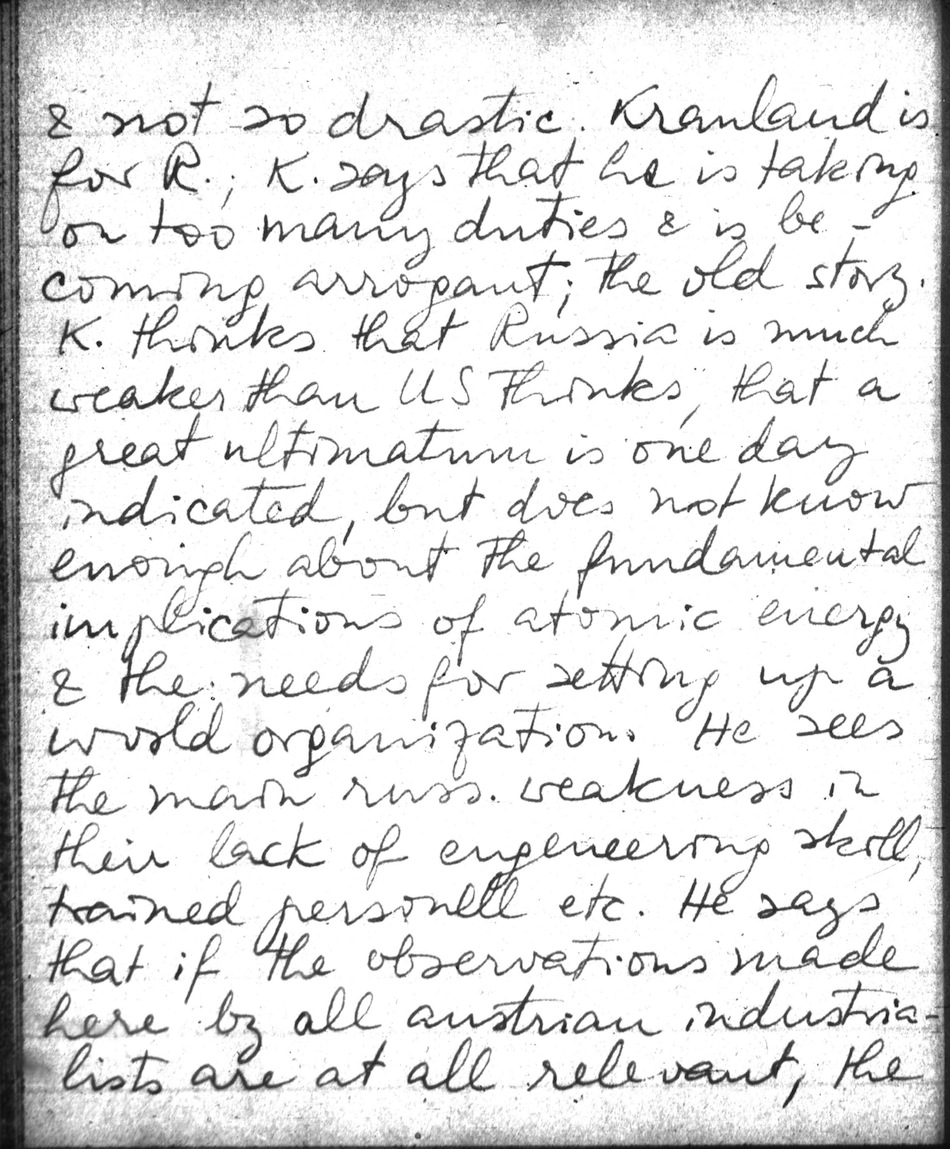 & not so drastic. Kranland is
for R.; K. says that he is taking
on too many duties & is be-
coming arrogant; the old story.
K. thinks that Russia is much
weaker than US thinks, that a
great ultimatum is one day
indicated, but does not know
enough about the fundamental
implications of atomic energy
& the needs for setting up a
world organization. He sees
the main russ. weakness in
their lack of engeneering skill,
trained personell etc. He says
that if the observations made
here by all austrian industria-
lists are at all relevant, the